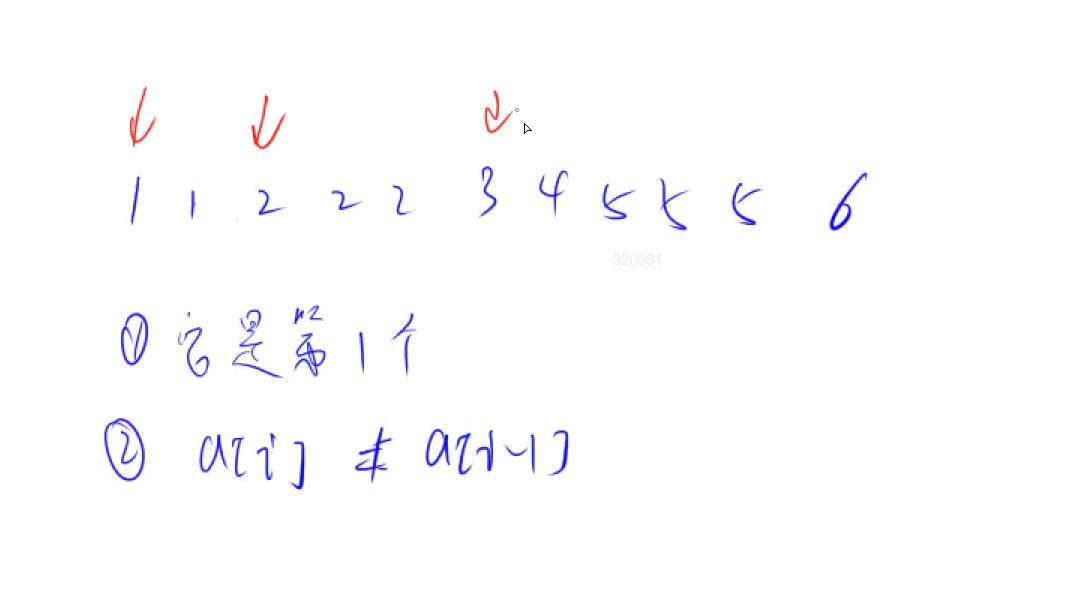 1 1 2 2 2 3 4 5 5 5 6
320581
① 它是第1个
② a[i] ≠ a[i-1]